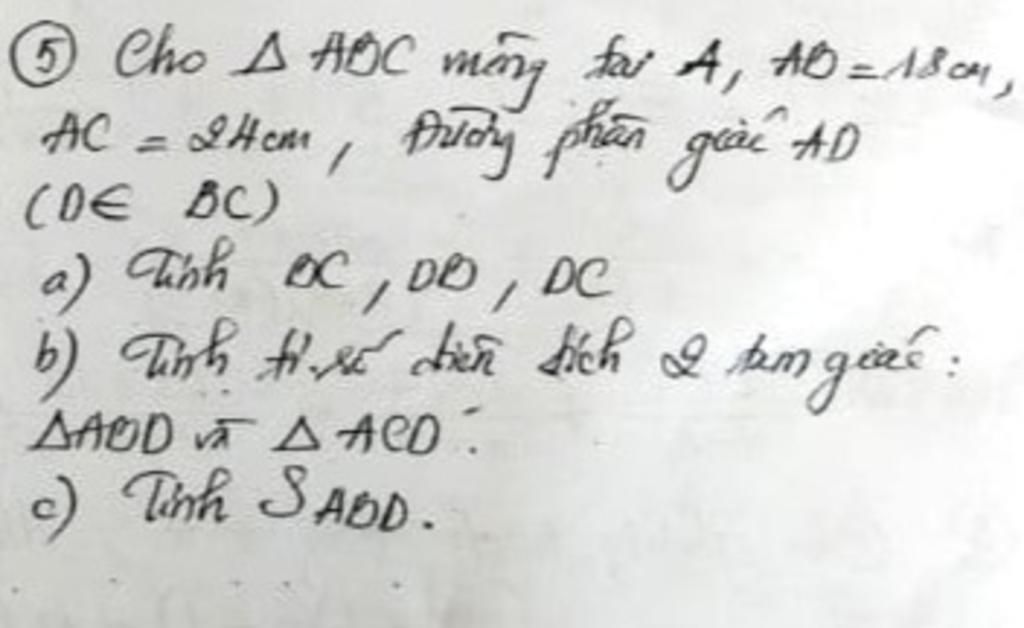 ⑤ Cho Δ ABC vuông tại A, AB = 18cm,
AC = 24cm, Đường phân giác AD
(D∈ BC)
a) Tính BC, DB, DC
b) Tính tỉ số diện tích 2 tam giác:
ΔABD và Δ ACD.
c) Tính S ABD.